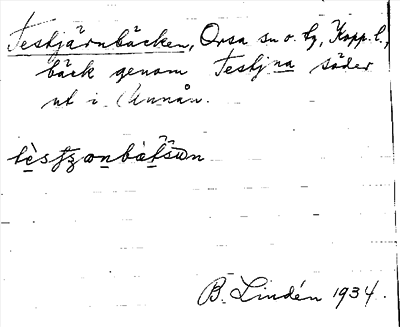 Testjärnbäcken, Orsa sn o. tg, Kopp. l.,
bäck genom Testjna söder
ut i Unnån.
B. Lindén 1934.